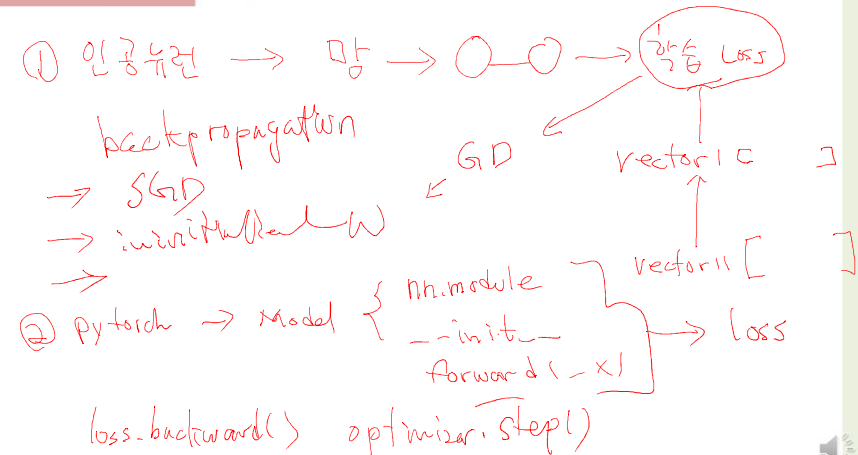 ① 인공뉴런 → 망 → ○-○ → 학습 Loss
backpropagation
GD
vector1 [ ]
→ SGD
→ W
→
vector11 [ ]
② pytorch → Model { nn.module
__init__
forward(_x)
→ loss
loss.backward() optimizer.step()